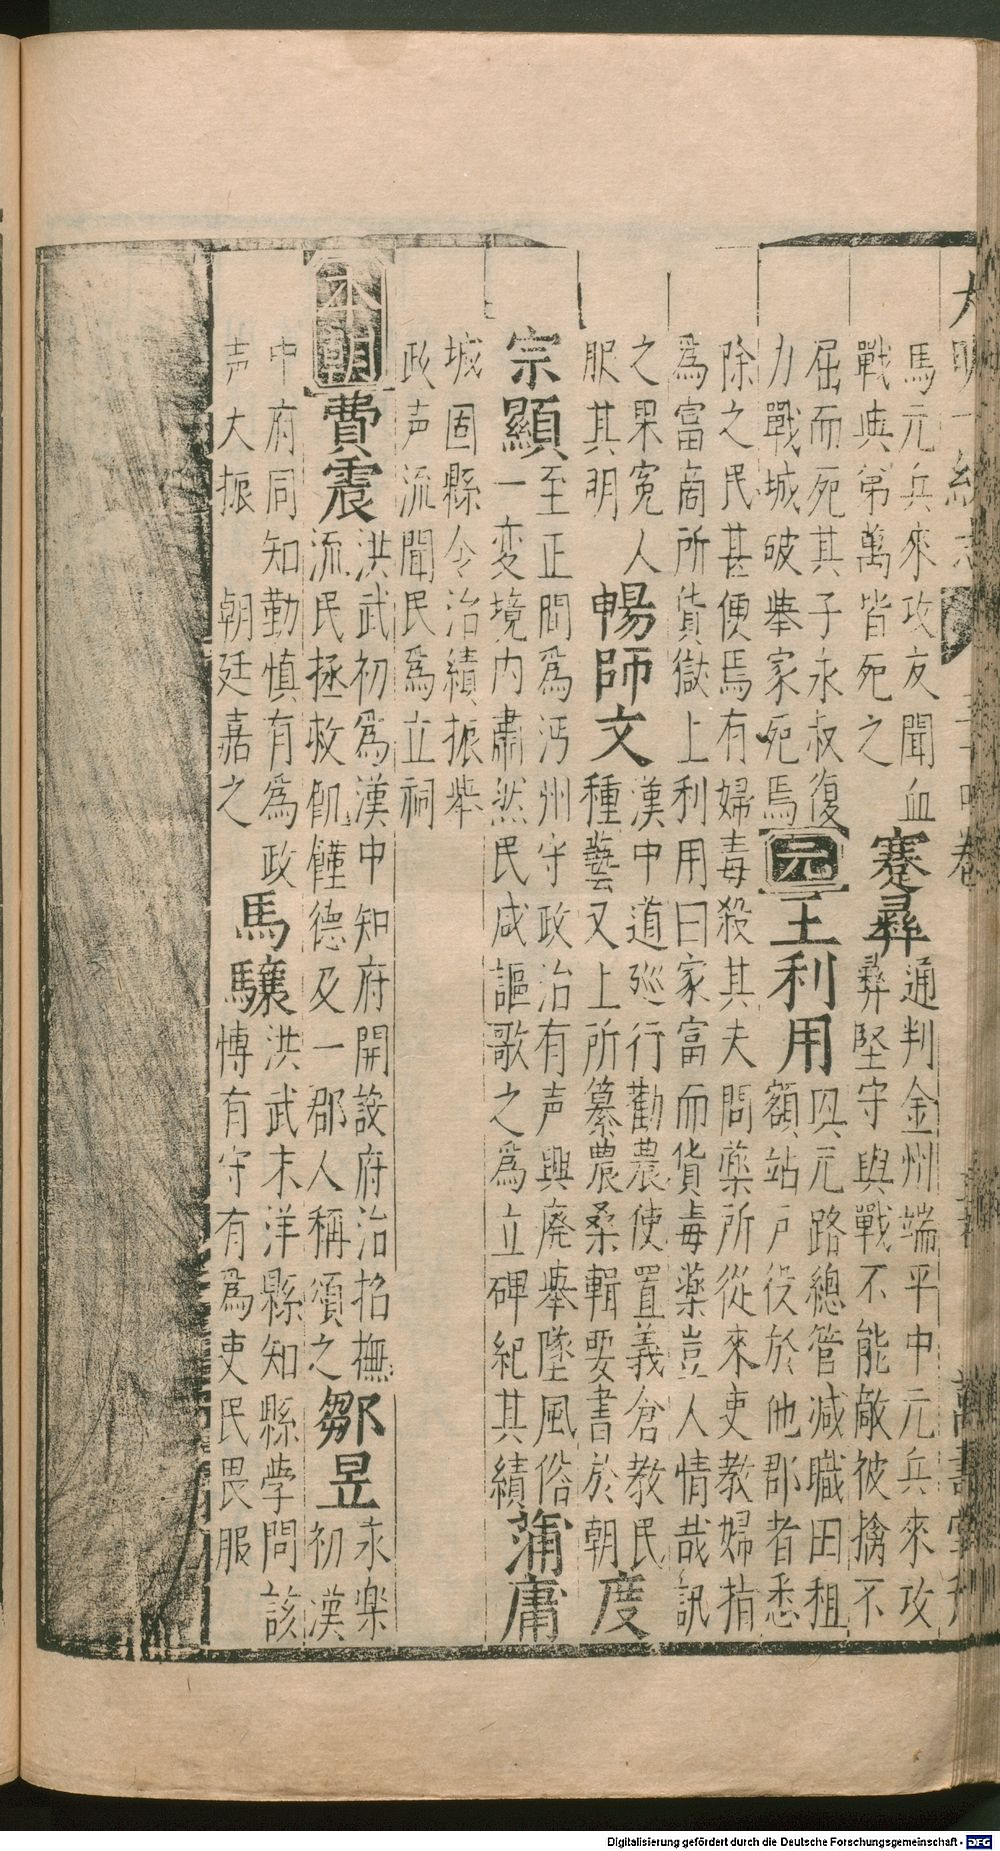 大明一統志 三十四卷 萬壽堂刊
馬元兵來攻友聞血
戰與弟萬皆死之
蹇彝
通判金州端平中元兵來攻
彝堅守與戰不能敵被擒不
屈而死其子永叔復
力戰城破舉家死焉
元
王利用
興元路總管减職田租
額站戶役於他郡者悉
除之民甚便焉有婦毒殺其夫問藥所從來吏教婦指
為富商所貨獄上利用曰家富而貨毒藥豈人情哉訊
之果寃人
服其明
暢師文
漢中道廵行勸農使置義倉教民
種藝又上所纂農桑輯要書於朝
度
宗顯
至正間為沔州守政治有声興廃舉墜風俗
一変境内肅然民咸謳歌之為立碑紀其績
蒲庸
城固縣令治績振舉
政声流聞民為立祠
本朝
費震
洪武初為漢中知府開設府治招撫
流民拯救飢饉德及一郡人稱頌之
鄒昱
永楽
初漢
中府同知勤慎有為政
声大振 朝廷嘉之
馬驤
洪武末洋縣知縣学問該
愽有守有為吏民畏服
Digitalisierung gefördert durch die Deutsche Forschungsgemeinschaft - DFG